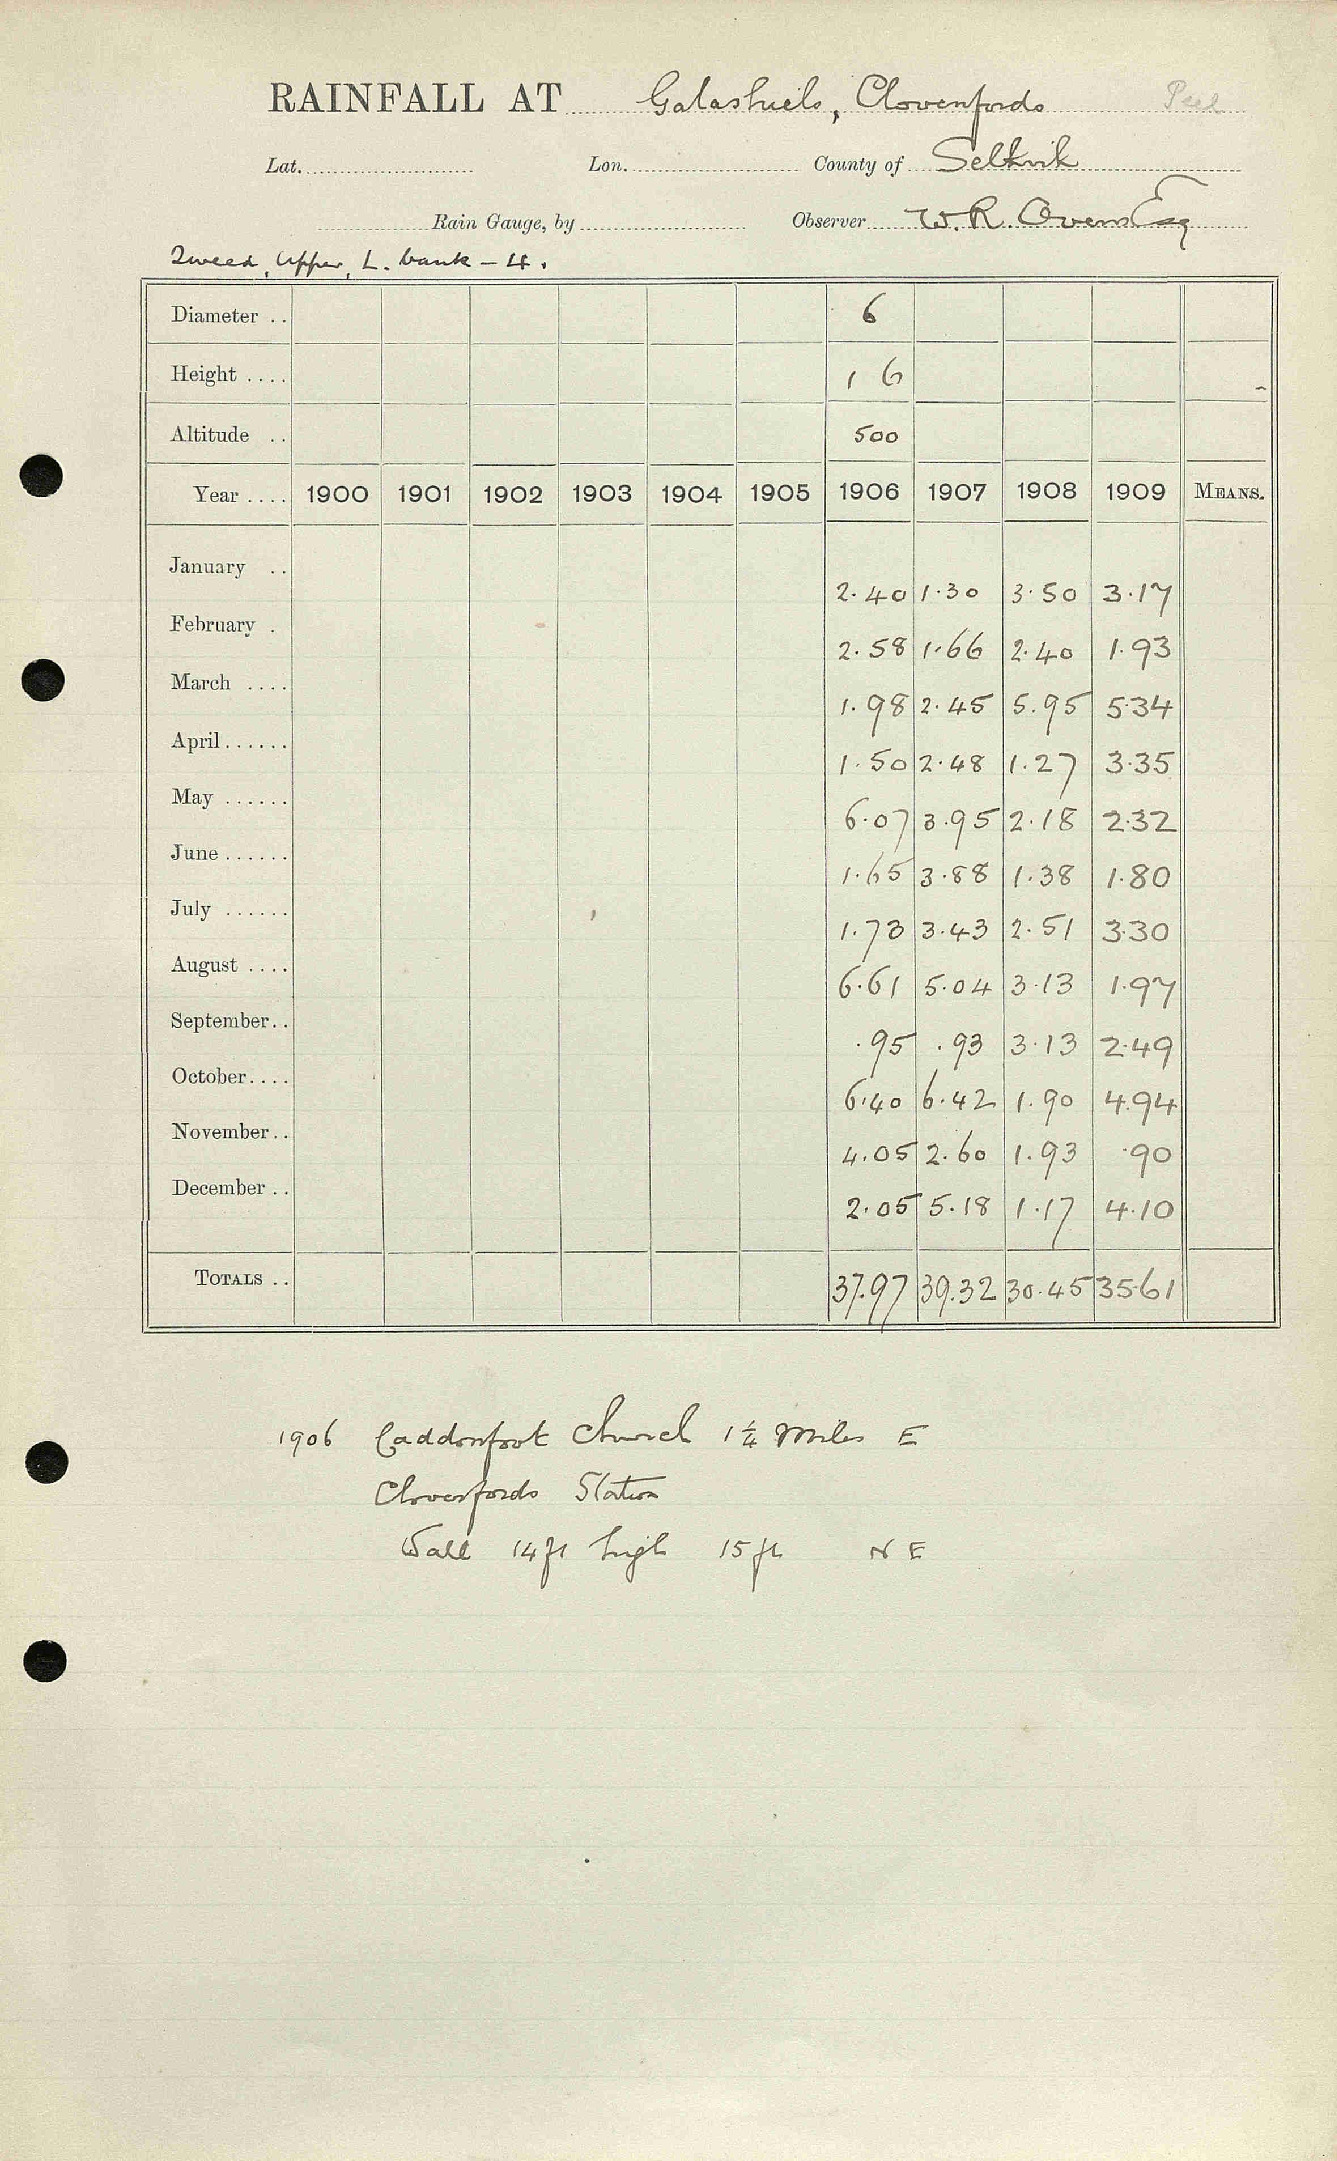 RAINFALL AT Galashiels, Clovenfords Peel
Lat. Lon. County of Selkirk
Rain Gauge, by Observer W. R. Ovens Esq
Tweed, Upper, L. bank - 4.
Diameter .. 6
Height .... 1 6
Altitude .. 500
Year .... 1900 1901 1902 1903 1904 1905 1906 1907 1908 1909 MEANS.
January .. 2.40 1.30 3.50 3.17
February . 2.58 1.66 2.40 1.93
March .... 1.98 2.45 5.95 5.34
April ...... 1.50 2.48 1.27 3.35
May ...... 6.07 3.95 2.18 2.32
June ...... 1.65 3.88 1.38 1.80
July ...... 1.73 3.43 2.51 3.30
August .... 6.61 5.04 3.13 1.97
September.. .95 .93 3.13 2.49
October.... 6.40 6.42 1.90 4.94
November.. 4.05 2.60 1.93 .90
December .. 2.05 5.18 1.17 4.10
TOTALS .. 37.97 39.32 30.45 35.61
1906 Caddonfoot Church 1¼ Miles E
Clovenfords Station
Wall 14 ft high 15 ft N E